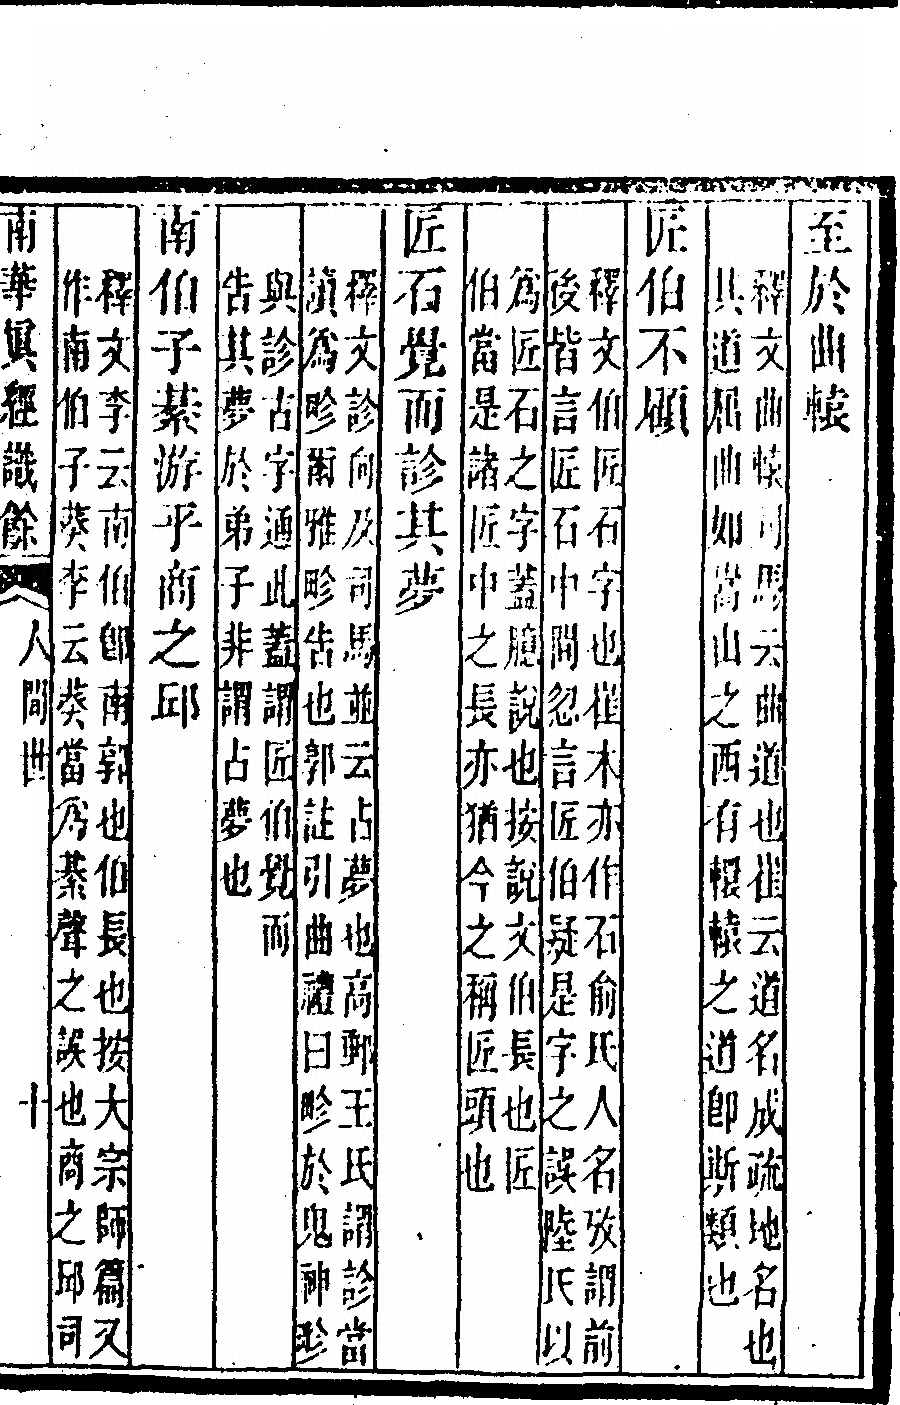 至於曲轅
釋文曲轅司馬云曲道也崔云道名成疏地名也
其道屈曲如嵩山之西有轘轅之道卽斯類也
匠伯不顧
釋文伯匠石字也崔木亦作石俞氏人名攷謂前
後皆言匠石中間忽言匠伯疑是字之誤陸氏以
爲匠石之字蓋臆說也按說文伯長也匠
伯當是諸匠中之長亦猶今之稱匠頭也
匠石覺而診其夢
釋文診向及司馬並云占夢也高郵王氏謂診當
讀爲畛爾雅畛告也郭註引曲禮曰畛於鬼神畛
與診古字通此蓋謂匠伯覺而
告其夢於弟子非謂占夢也
南伯子綦游乎商之邱
釋文李云南伯卽南郭也伯長也按大宗師篇又
作南伯子葵李云葵當爲綦聲之誤也商之邱司
南華眞經識餘 人間世 十